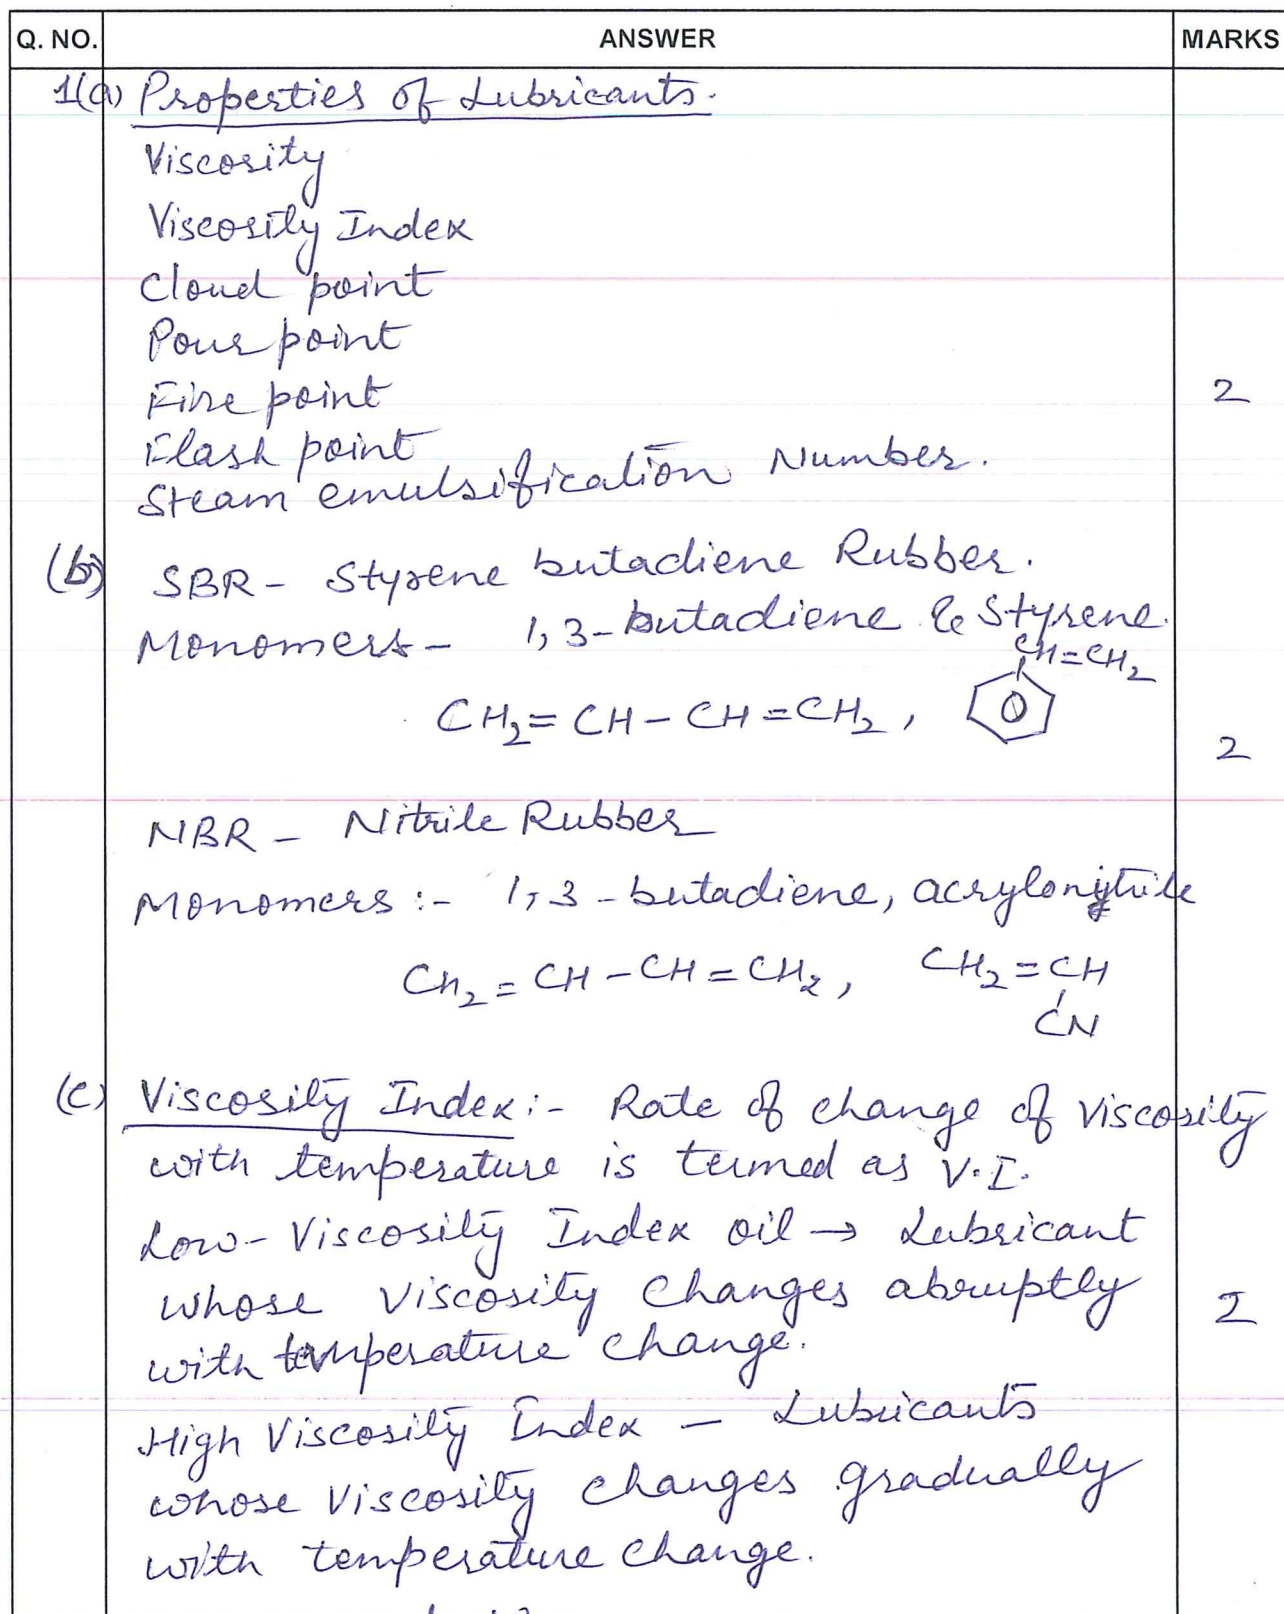 Q. NO. ANSWER MARKS
1(a) Properties of Lubricants.
Viscosity
Viscosity Index
Cloud point
Pour point
Fire point 2
Flash point
Steam emulsification Number.
(b) SBR - Styrene butadiene Rubber.
Monomers - 1,3-butadiene & Styrene.
CH=CH2
CH2=CH-CH=CH2,
2
NBR - Nitrile Rubber
Monomers :- 1,3-butadiene, acrylonitrile
CH2=CH-CH=CH2, CH2=CH
CN
(c) Viscosity Index :- Rate of change of Viscosity
with temperature is termed as V.I.
Low-Viscosity Index oil → Lubricant
whose viscosity changes abruptly 2
with temperature change.
High Viscosity Index - Lubricants
whose viscosity changes gradually
with temperature change.